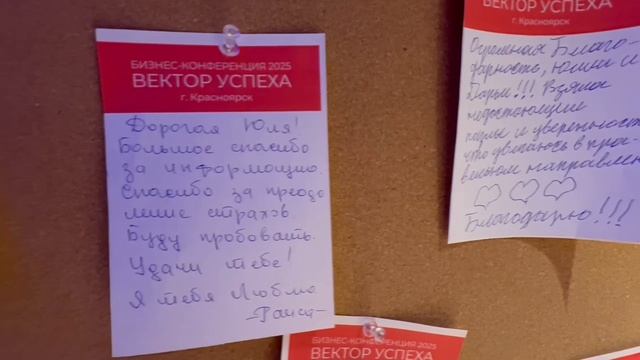 БИЗНЕС-КОНФЕРЕНЦИЯ 2025
ВЕКТОР УСПЕХА
г. Красноярск
Дорогая Юля!
Большое спасибо
за информацию.
Спасибо за преодо
ление страхов.
Буду пробовать.
Удачи тебе!
Я тебя Люблю
-Раиса-
ВЕКТОР УСПЕХА
г. Красноярск
Огромная Благо-
дарность, Юлии и
Дарьи!!! Взяла
недостающие
пазлы и уверенность
что увлекаюсь в пра-
вильном направлен
Благодарю!!!
БИЗНЕС-КОНФЕРЕНЦИЯ 2025
ВЕКТОР УСПЕХА